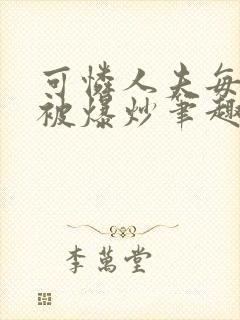 可憐人夫每
被爆炒筆趣
李萬堂